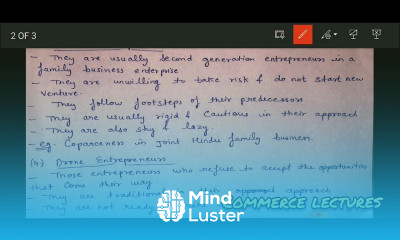 2 OF 3
- They are usually second generation entrepreneurs in a
family business enterprise
- They are unwilling to take risk & do not start new
venture.
- They follow footsteps of their predecessor
- They are usually rigid & Cautious in their approach
- They are also shy & lazy.
eg. Coparceners in joint Hindu family business.
(4) Drone Entrepreneurs
- Those entrepreneurs who refuse to accept the opportunities
that come their way
- They are traditional in their approach
- They are not ready
Mind
Luster
COMMERCE LECTURES